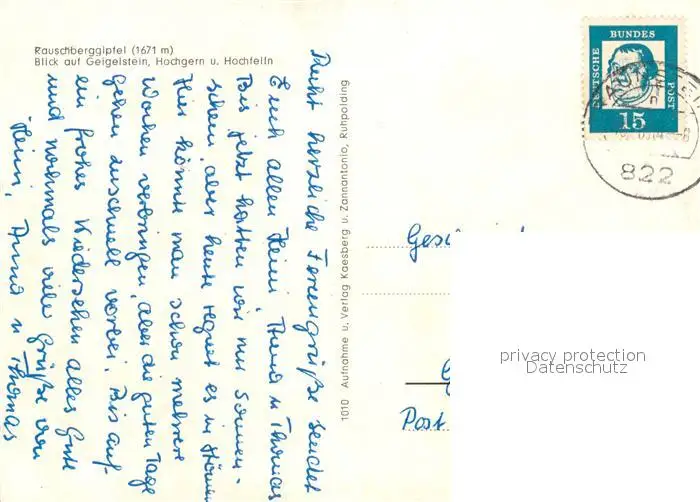 Rauschberggipfel (1671 m)
Blick auf Geigelstein, Hochgern u. Hochfelln
Recht herzliche Feriengrüße sendet
Euch allen Heini, Anna u Thomas
Bis jetzt hatten wir nur Sonnen-
schein, aber heute regnet es in Strömen
Hier könnte man schon mehrere
Wochen verbringen, aber die guten Tage
gehen zuschnell vorbei. Bis auf
ein frohes Wiedersehen alles Gute
und nochmals viele Grüße von
Heini, u Thomas
1010 Aufnahme u. Verlag Kaesberg u. Zannantonio, Ruhpolding
DEUTSCHE BUNDES POST
15
822
Post
privacy protection
Datenschutz